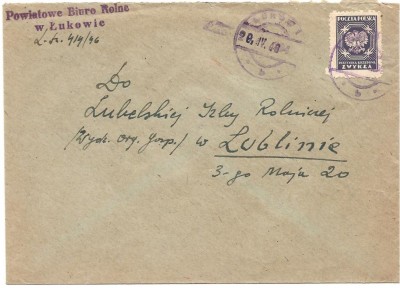 Powiatowe Biuro Rolne
w Łukowie
L. dz. 4/4/46
ŁUKÓW 1
POCZTA POLSKA
ZWYKŁA
Do
Lubelskiej Izby Rolniczej
/Wydz. Org. Gosp./ w Lublinie
3-go Maja 20